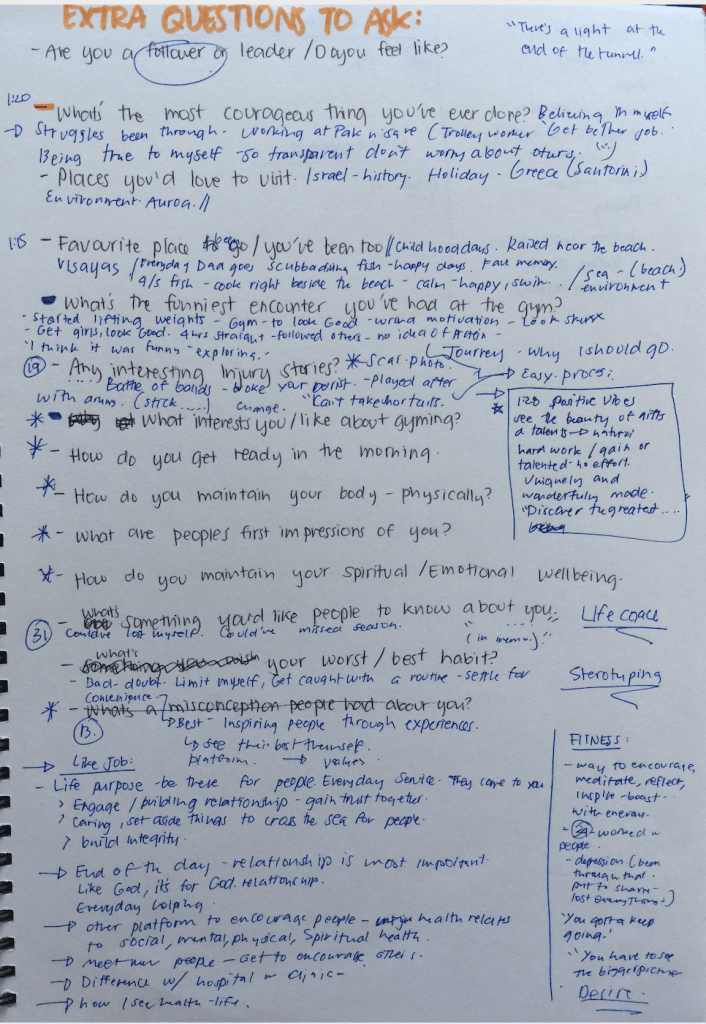 EXTRA QUESTIONS TO ASK:
"There's a light at the
end of the tunnel."
- Are you a follower or leader / Do you feel like?
1:20
- What's the most courageous thing you've ever done? Believing in myself
→ Struggles been through. Working at Pak n save (Trolley worker Get better job.
Being true to myself - so transparent don't worry about others.
- Places you'd love to visit. Israel - history. Holiday - Greece (Santorini)
Environment. Auroa. //
1:15 - Favourite place go / you've been too // Child hood days. Raised near the beach.
Visayas / Everyday Dad goes scubbadiving fish - happy days. Fave memory.
fish - cook right beside the beach - calm - happy, swim. / sea - (beach)
environment
- What's the funniest encounter you've had at the gym?
- Started lifting weights - Gym - to look Good - wrong motivation - Look
- Get girls, look Good. 4hrs straight - followed others - no idea of
"I think it was funny - exploring."
Journey - why I should go.
19 - Any interesting Injury stories? * Scar photo.
→ Easy
Battle of bands - broke your - played after
with arms. (stick .....) change. "Can't take shortcuts.
* - What interests you / like about gyming?
* 1:28 positive vibes
see the beauty of gifts
& talents →
hard work / gain or
talented - no effort.
Uniquely and
wonderfully made.
"Discover the greatest ....
* - How do you get ready in the morning.
* - How do you maintain your body - physically?
* - What are peoples first impressions of you?
* - How do you maintain your spiritual / Emotional wellbeing.
- whats something you'd like people to know about you.
31 Could've lost myself. Could've missed season.
" ......"
(in memo).
Life coach
- what's your worst / best habit?
- Bad - doubt. Limit myself, Get caught with a routine - settle for
convenience.
Sterotyping
* - Whats a misconception people had about you?
13. → Best - Inspiring people through experiences.
↳ see their best themself.
platform. → values
→ Like Job:
- Life purpose - be there for people. Everyday service. They come to you
> Engage / building relationship - gain trust together.
> Caring, set aside things to cross the sea for people.
> build integrity.
→ End of the day - relationship is most important.
Like God, it's for God. relationship.
Everyday helping.
→ other platform to encourage people - health relates
to social, mental, physical, Spiritual health.
→ meet new people - Get to encourage others.
→ Difference w/ hospital clinic -
→ how I see health - life.
FITNESS:
- way to encourage,
meditate, reflect,
inspire - boast
with
- 34 - worked
people.
- depression. (been
through that
put to shame -
lost everything.)
'You gotta keep
going.'
"You have to see
the bigger picture
Desire.